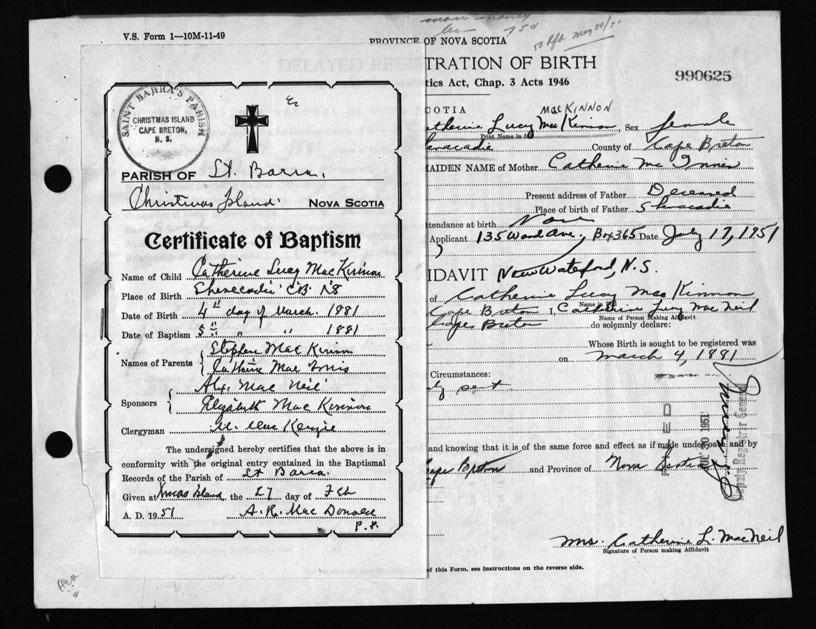 V.S. Form 1—10M-11-49
PROVINCE OF NOVA SCOTIA
50 Pft May 30/51
TRATION OF BIRTH
tics Act, Chap. 3 Acts 1946
990625
SAINT BARRA'S PARISH
CHRISTMAS ISLAND
CAPE BRETON,
N. S.
PARISH OF St. Barra.
Christmas Island. NOVA SCOTIA
Certificate of Baptism
Name of Child Catherine Lucy MacKinnon
Place of Birth C.B. NS
Date of Birth 4th day of March. 1881
Date of Baptism 5th " " 1881
Names of Parents Stephen MacKinnon
Catherine Mac Innis
Sponsors Alex. Mac Neil
Elizabeth Mac Kinnon
Clergyman M. Mac Kenzie
The undersigned hereby certifies that the above is in
conformity with the original entry contained in the Baptismal
Records of the Parish of St Barra.
Given at Xmas Island the 27 day of Feb
A. D. 1951 A. R. Mac Donald
P.P.
SCOTIA
MACKINNON
atherine Lucy MacKinnon Sex female
Print Name in
County of Cape Breton
MAIDEN NAME of Mother Catherine Mc Innis
Present address of Father Deceased
Place of birth of Father Shenacadie
ttendance at birth
Applicant 135 Ward Ave., Box 365 Date July 17, 1951
IDAVIT New Waterford, N.S.
of Catherine Lucy Mac Kinnon
Cape Breton I, Catherine Lucy MacNeil
Name of Person Making Affidavit
Cape Breton do solemnly declare:
Whose Birth is sought to be registered was
on March 4, 1881
Circumstances:
and knowing that it is of the same force and effect as if made under oath and by
Cape Breton and Province of Nova Scotia
30 1951
Deputy Registrar General
Mrs. Catherine L. MacNeil
Signature of Person making Affidavit
of this Form, see instructions on the reverse side.